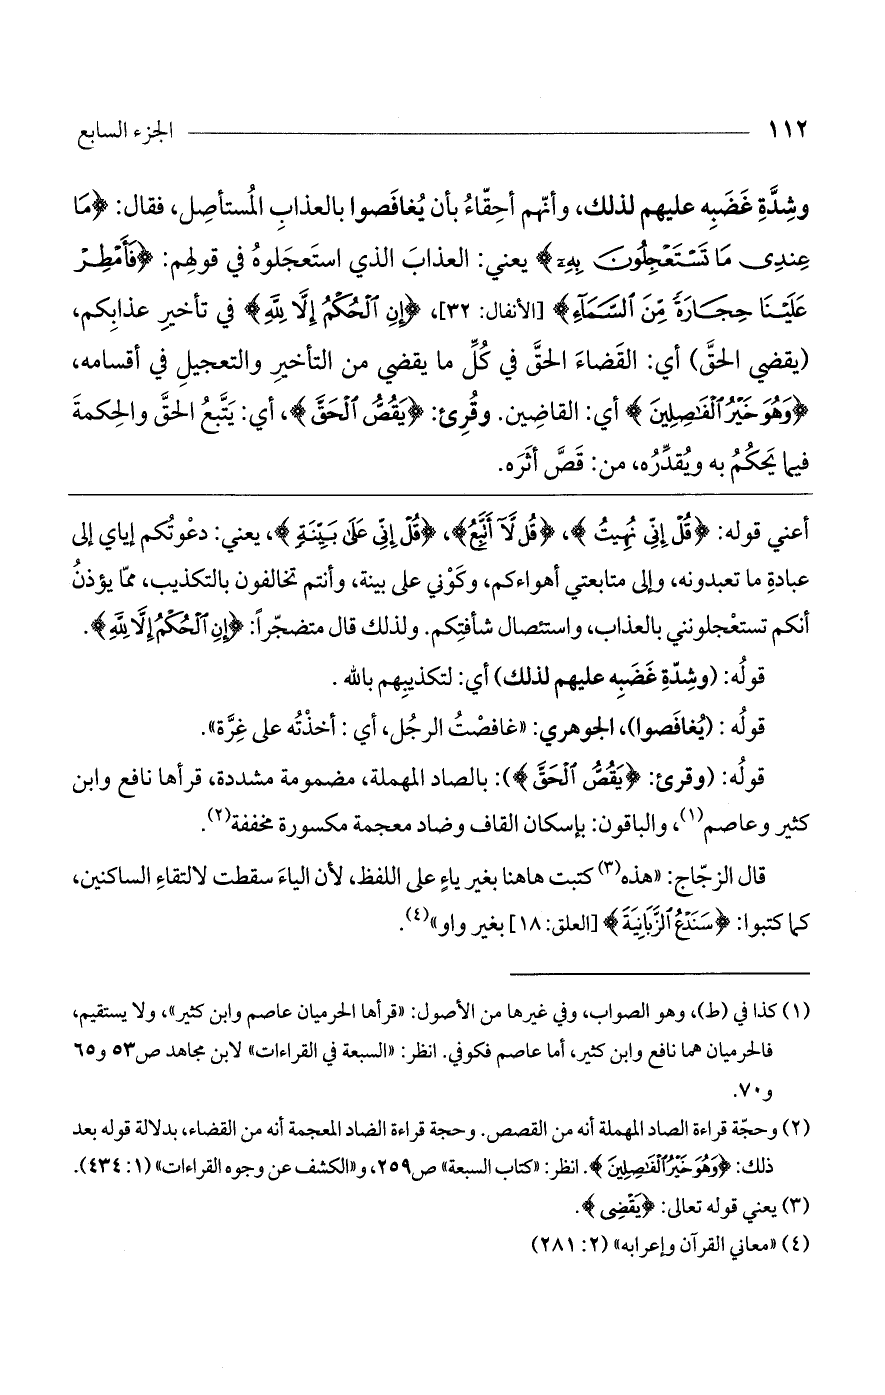 ١١٢ الجزء السابع
وشِدَّةِ غَضَبِه عليهم لذلك، وأنّهم أحِقّاءُ بأن يُغافَصوا بالعذابِ المُستأصِل، فقال: ﴿مَا
عِندِى مَا تَسْتَعْجِلُونَ بِهِۦٓ﴾ يعني: العذابَ الذي استَعجَلوهُ في قولهِم: ﴿فَأَمْطِرْ
عَلَيْنَا حِجَارَةً مِّنَ ٱلسَّمَآءِ﴾ [الأنفال: ٣٢]، ﴿إِنِ ٱلْحُكْمُ إِلَّا لِلَّهِ﴾ في تأخيرِ عذابِكم،
(يقضي الحقَّ) أي: القَضاءَ الحقَّ في كُلِّ ما يقضي من التأخيرِ والتعجيلِ في أقسامه،
﴿وَهُوَ خَيْرُ ٱلْفَـٰصِلِينَ﴾ أي: القاضِين. وقُرِئ: ﴿يَقُصُّ ٱلْحَقَّ﴾، أي: يَتَّبعُ الحقَّ والحِكمةَ
فيما يَحكُمُ به ويُقدِّرُه، من: قَصَّ أثَرَه.
أعني قوله: ﴿قُلْ إِنِّى نُهِيتُ﴾، ﴿قُل لَّآ أَتَّبِعُ﴾، ﴿قُلْ إِنِّى عَلَىٰ بَيِّنَةٍ﴾، يعني: دعْوتُكم إياي إلى
عبادةِ ما تعبدونه، وإلى متابعتي أهواءكم، وكَوْني على بينة، وأنتم تخالفون بالتكذيب، ممّا يؤذنُ
أنكم تستعْجلونني بالعذاب، واستئصال شأفتِكم. ولذلك قال متضجّراً: ﴿إِنِ ٱلْحُكْمُ إِلَّا لِلَّهِ﴾.
قولُه: (وشِدّةِ غَضَبِه عليهم لذلك) أي: لتكذيبِهم بالله .
قولُه : (يُغافَصوا)، الجوهري: «غافصْتُ الرجُل، أي : أخذْتُه على غِرَّة».
قولُه: (وقرئ: ﴿يَقُصُّ ٱلْحَقَّ﴾): بالصاد المهملة، مضمومة مشددة، قرأها نافع وابن
كثير وعاصم(١)، والباقون: بإسكان القاف وضاد معجمة مكسورة مخففة(٢).
قال الزجّاج: «هذه(٣) كتبت هاهنا بغير ياءٍ على اللفظ، لأن الياءَ سقطت لالتقاءِ الساكنين،
كما كتبوا: ﴿سَنَدْعُ ٱلزَّبَانِيَةَ﴾ [العلق: ١٨] بغير واو»(٤).
(١) كذا في (ط)، وهو الصواب، وفي غيرها من الأصول: «قرأها الحرميان عاصم وابن كثير»، ولا يستقيم،
فالحرميان هما نافع وابن كثير، أما عاصم فكوفي. انظر: «السبعة في القراءات» لابن مجاهد ص٥٣ و٦٥
و٧٠.
(٢) وحجّة قراءة الصاد المهملة أنه من القصص. وحجة قراءة الضاد المعجمة أنه من القضاء، بدلالة قوله بعد
ذلك: ﴿وَهُوَ خَيْرُ ٱلْفَـٰصِلِينَ﴾. انظر: «كتاب السبعة» ص٢٥٩، و«الكشف عن وجوه القراءات» (١: ٤٣٤).
(٣) يعني قوله تعالى: ﴿يَقْضِى﴾.
(٤) «معاني القرآن وإعرابه» (٢: ٢٨١)